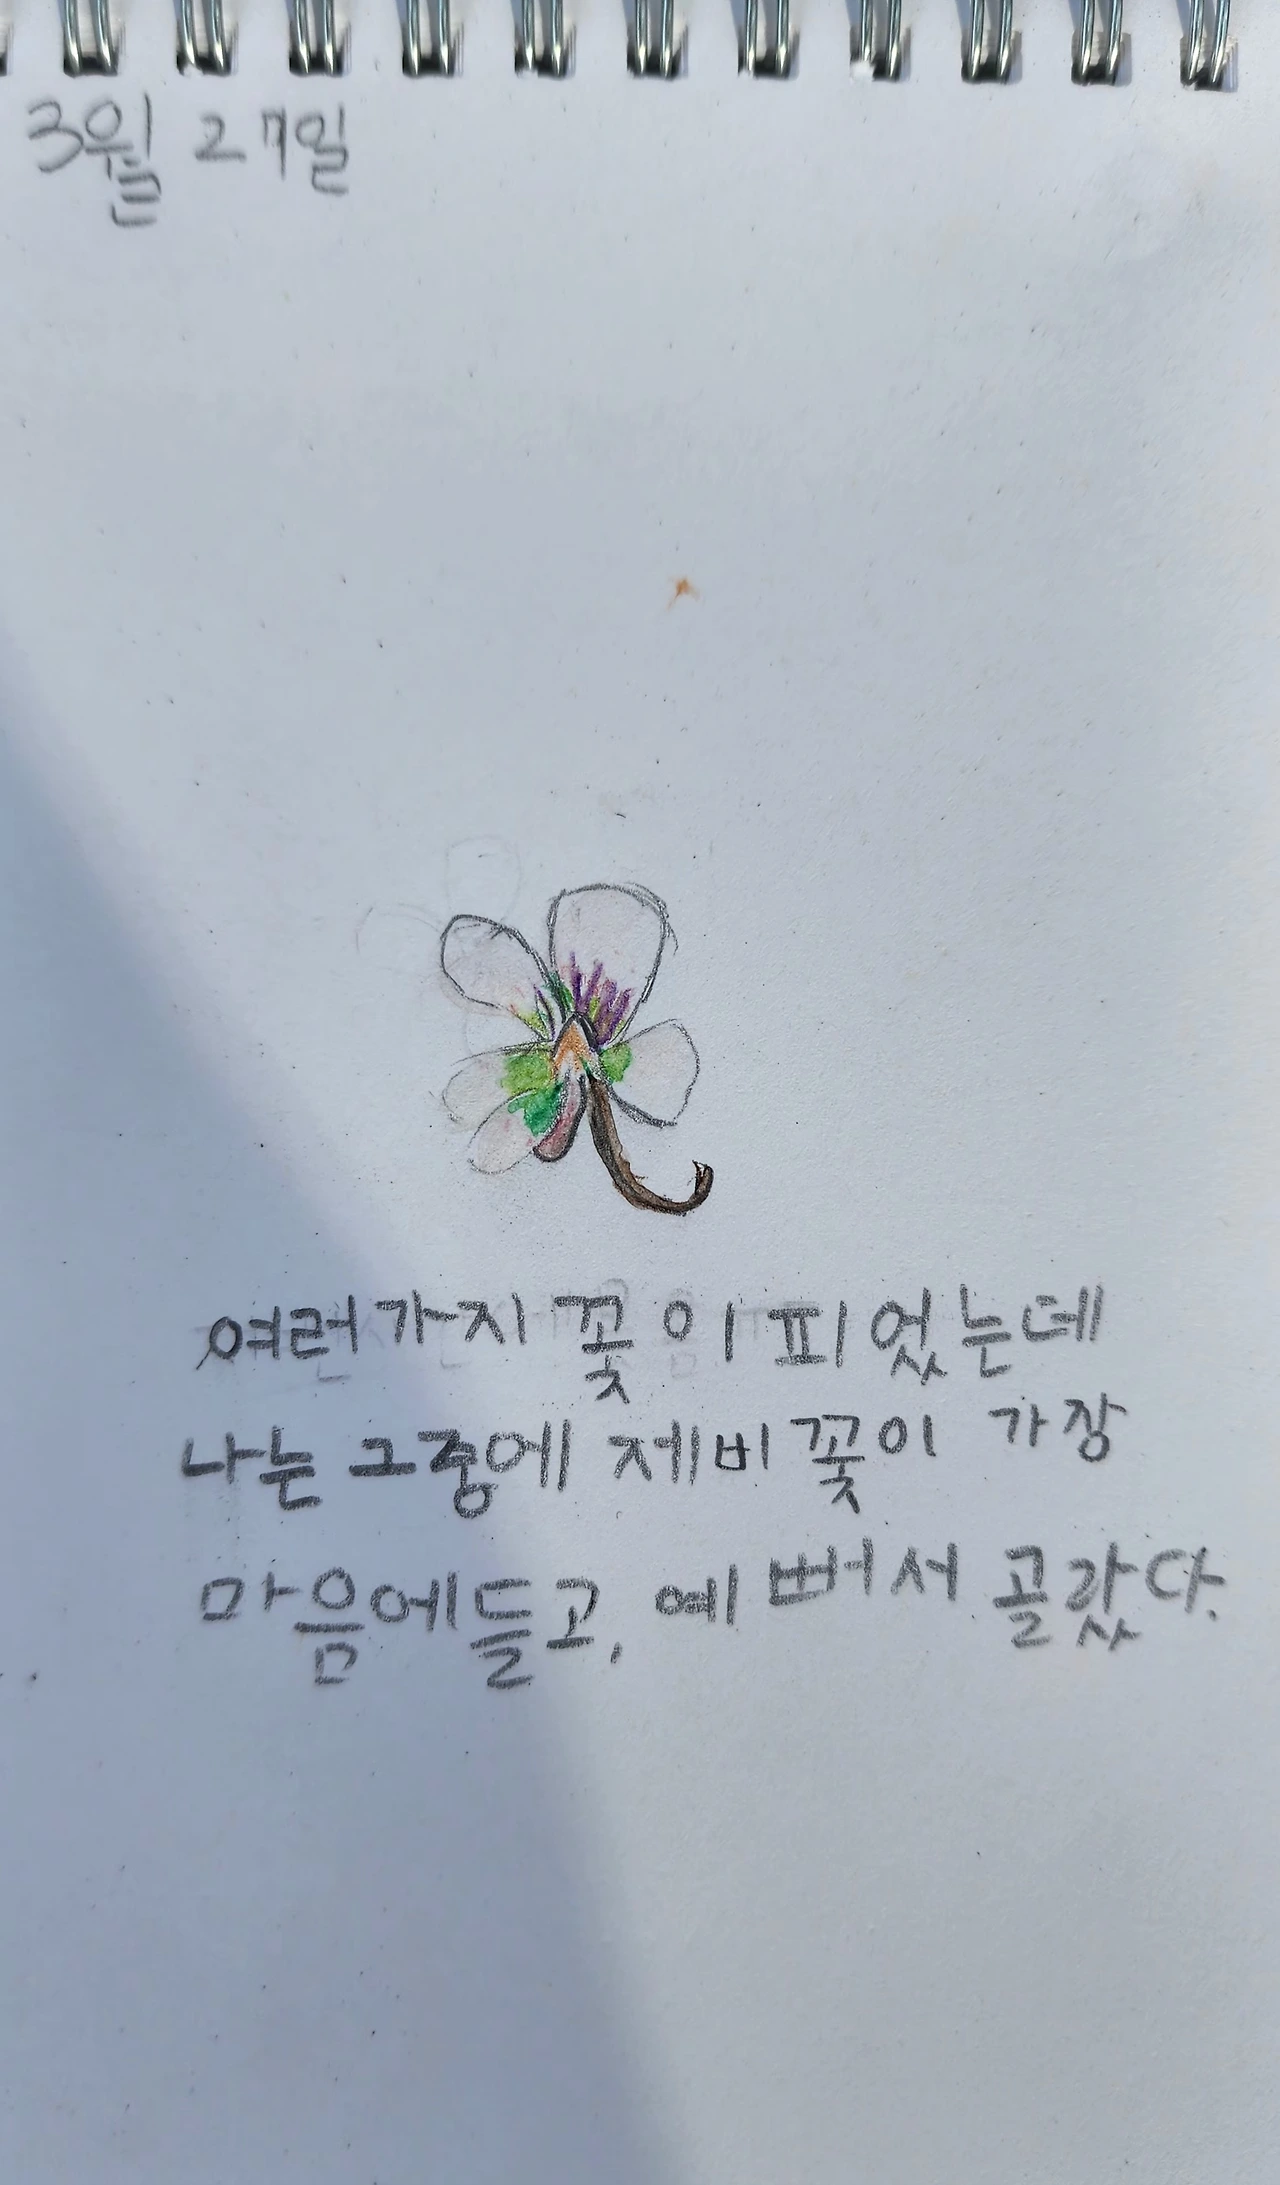 3월 27일
여러가지 꽃이 피었는데
나는 그중에 제비꽃이 가장
마음에들고, 예뻐서 골랐다.